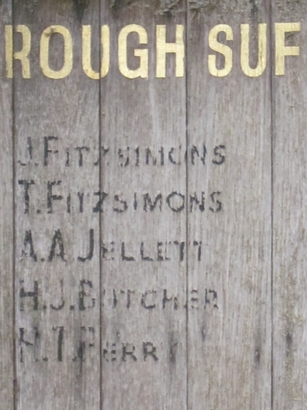 ROUGH SUF
J. FITZSIMONS
T. FITZSIMONS
A. A JELLETT
H. J. BUTCHER
H. T. PERRY